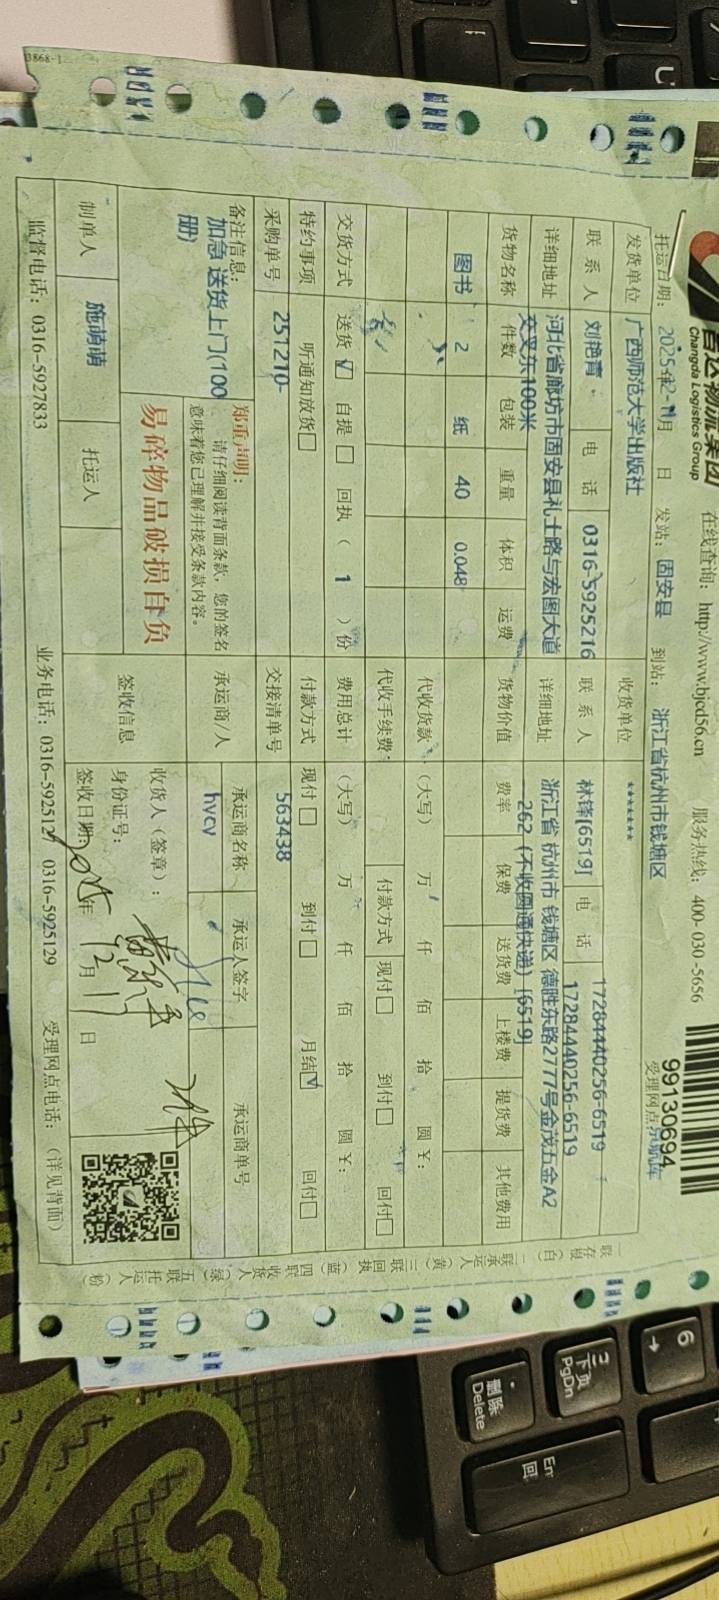 昌达物流集团
Changda Logistics Group
在线查询: http://www.bjcd56.cn 服务热线: 400-030-5656
99130694
托运日期: 2025 月 日 发站: 固安县 到站: 浙江省杭州市钱塘区 受理网点:
发货单位 广西师范大学出版社 收货单位 *******
联系人 刘艳青 电话 0316-5925216 联系人 林锋[6519] 电话 17284440256-6519
17284440256-6519
详细地址 河北省廊坊市固安县礼士路与宏图大道交叉东100米 详细地址 浙江省 杭州市 钱塘区 德胜东路2777号金茂五金A2 262 (不收圆通快递) [6519]
货物名称 件数 包装 重量 体积 运费 货物价值 费率 保费 送货费 上楼费 提货费 其他费用
图书 2 纸 40 0.048
代收货款: (大写) 万 仟 佰 拾 圆 ¥:
代收手续费: 付款方式 现付□ 到付□ 回付□
交货方式 送货☑ 自提□ 回执 ( 1 ) 份 费用总计 (大写) 万 仟 佰 拾 圆 ¥:
特约事项 听通知放货□ 付款方式 现付□ 到付□ 月结☑ 回付□
采购单号 251210- 交接清单号 563438
备注信息: 加急 送货上门(100册)
郑重声明:
请仔细阅读背面条款, 您的签名
意味着您已理解并接受条款内容。
易碎物品破损自负
承运商/人 承运商名称 承运人签字 承运商单号
hvcv
签收信息 收货人 (签章):
身份证号:
签收日期: 2025年 12月 17 日
制单人 施萌萌 托运人
监督电话: 0316-5927833 业务电话: 0316-5925127 0316-5925129 受理网点电话: (详见背面)
一联存根 (白) 二联承运人 (黄) 三联回执 (蓝) 四联收货人 (绿) 五联托运人 (粉)
3868-1
6
3
下页
PgDn
删除
Delete
回